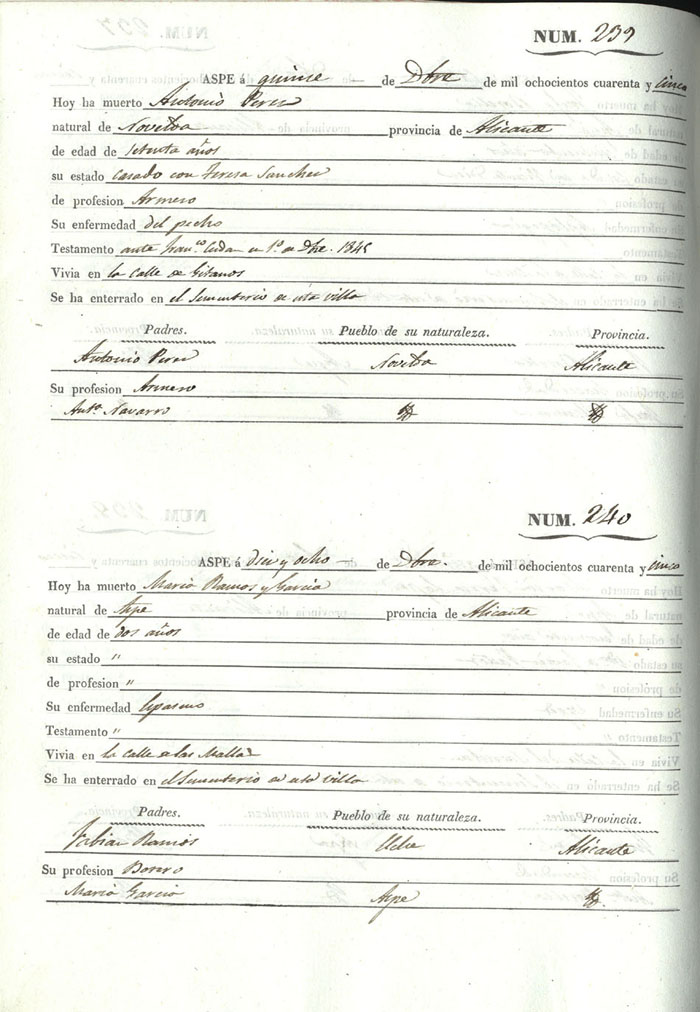 NUM. 239
ASPE á quinse de Dbre de mil ochocientos cuarenta y cinco
Hoy ha muerto Antonio Perez
natural de Novelda provincia de Alicante
de edad de setenta años
su estado casado con Teresa Sanchez
de profesion Armero
Su enfermedad del pecho
Testamento ante Fran.co en 1.º de Dbre. 1845
Vivia en la calle de Gitanos
Se ha enterrado en el Sementerio de esta villa
Padres. Pueblo de su naturaleza. Provincia.
Antonio Perez Novelda Alicante
Su profesion Armero
Ant.a Navarro
NUM. 240
ASPE á dies y ocho de Dbre. de mil ochocientos cuarenta y cinco
Hoy ha muerto Maria Ramos y Garcia
natural de Aspe provincia de Alicante
de edad de dos años
su estado "
de profesion "
Su enfermedad
Testamento "
Vivia en la calle de las Mallas
Se ha enterrado en el Sementerio de esta villa
Padres. Pueblo de su naturaleza. Provincia.
Fabian Ramos Elche Alicante
Su profesion
Maria Garcia Aspe